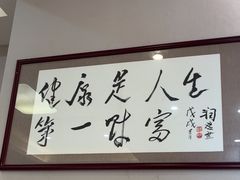 健康是人生
第一财富
戊戌